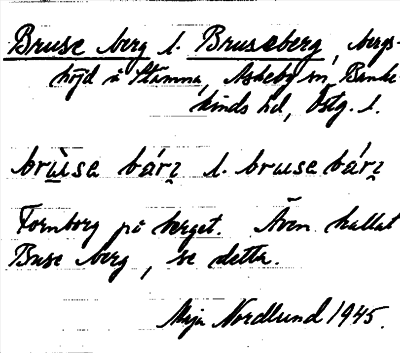 Bruse berg l. Bruseberg, bergs-
höjd i Stämma, Askeby sn, Banke-
kinds hd, Östg. l.
brùse bárʒ l. bruse bárʒ
Fornborg på berget. Även kallat
Buse berg, se detta.
Maja Nordlund 1945.